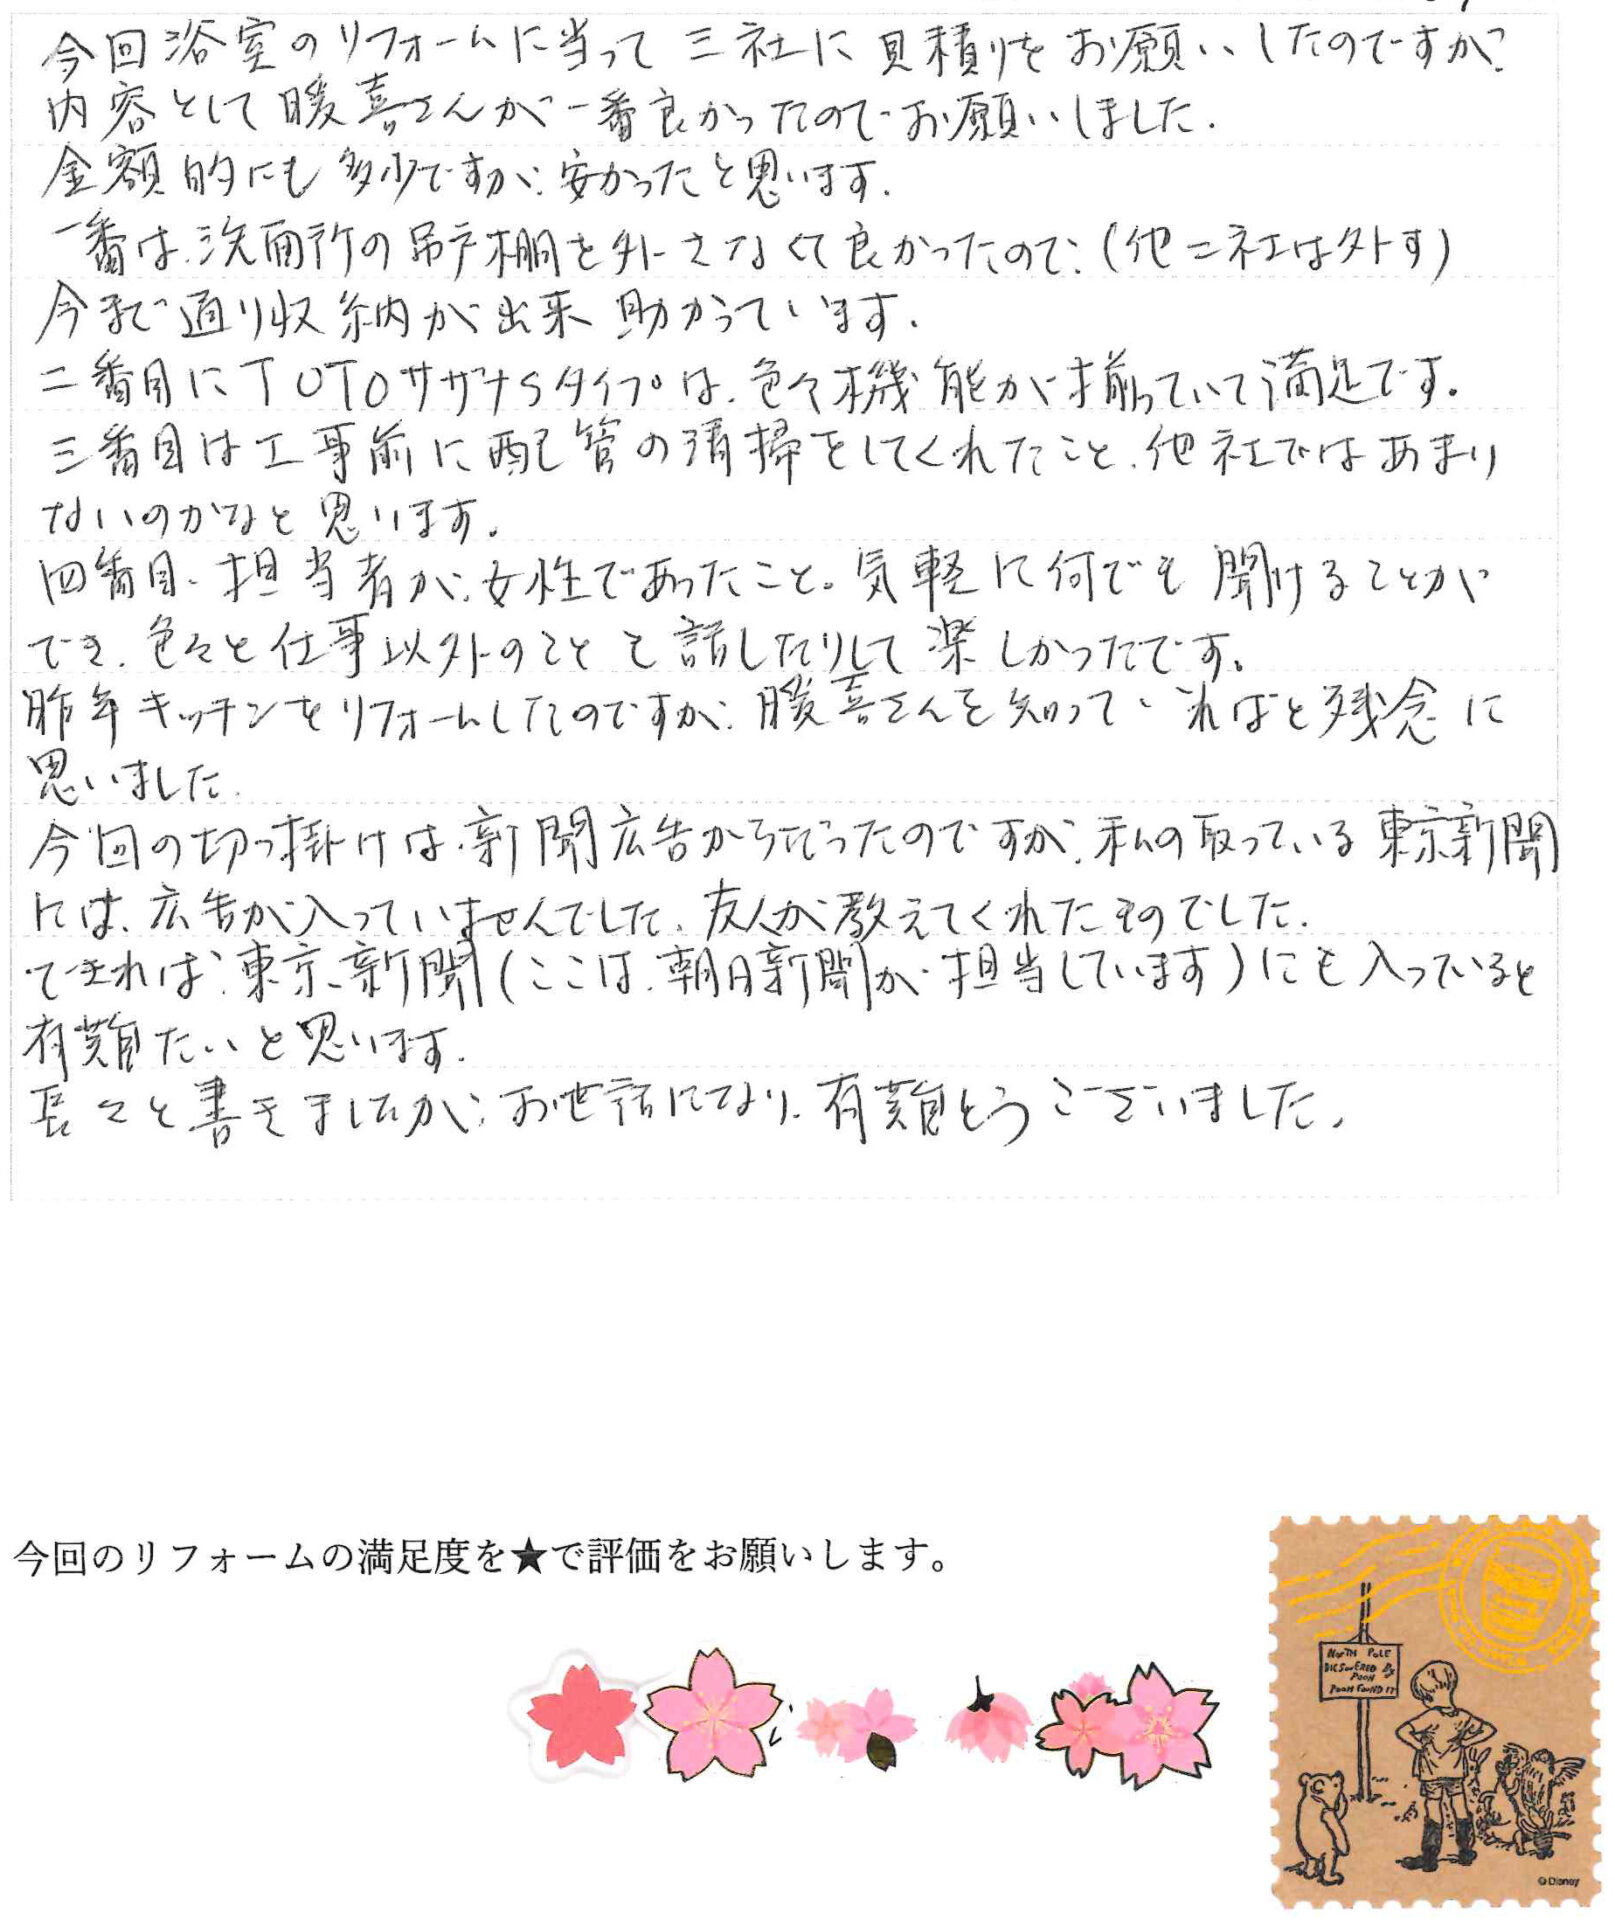 今回浴室のリフォームに当って三社に見積りをお願いしたのですが、
内容として暖喜さんが一番良かったのでお願いしました.
金額的にも多少ですが、安かったと思います.
一番は、洗面所の吊戸棚を外さなくて良かったので、(他二社は外す)
今まで通り収納が出来助かっています.
二番目にTOTOサザナSタイプは、色々機能が揃っていて満足です。
三番目は工事前に配管の清掃をしてくれたこと、他社ではあまり
ないのかなと思います。
四番目、担当者が、女性であったこと。気軽に何でも聞けることが
でき、色々と仕事以外のことも話したりして楽しかったです。
昨年キッチンをリフォームしたのですが、暖喜さんを知っていればと残念に
思いました.
今回の切っ掛けは、新聞広告からだったのですが、私の取っている東京新聞
には、広告が入っていませんでした、友人が教えてくれたものでした.
できれば、東京新聞(ここは、朝日新聞が担当しています)にも入っていると
有難たいと思います.
長々と書きましたが、お世話になり、有難とうございました。
今回のリフォームの満足度を★で評価をお願いします。
NORTH POLE
DICSOVERED By
POOH
POOH FOUND IT
©Disney